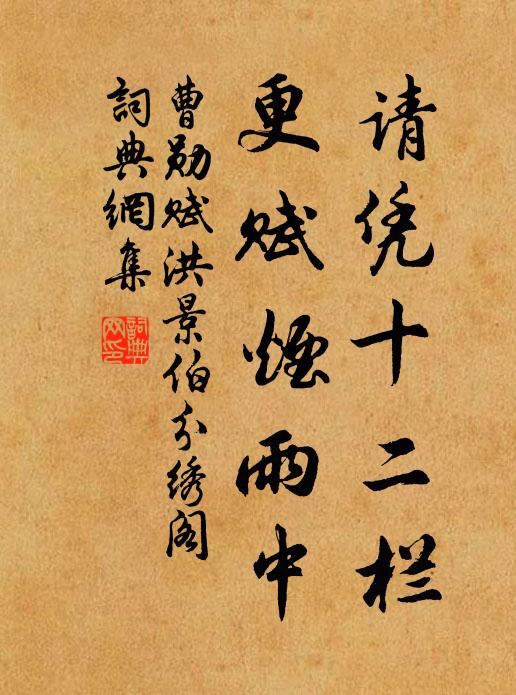 请凭十二栏
更赋烟雨中
曹勋赋洪景伯分绣阁
詞典網集
詞典網印